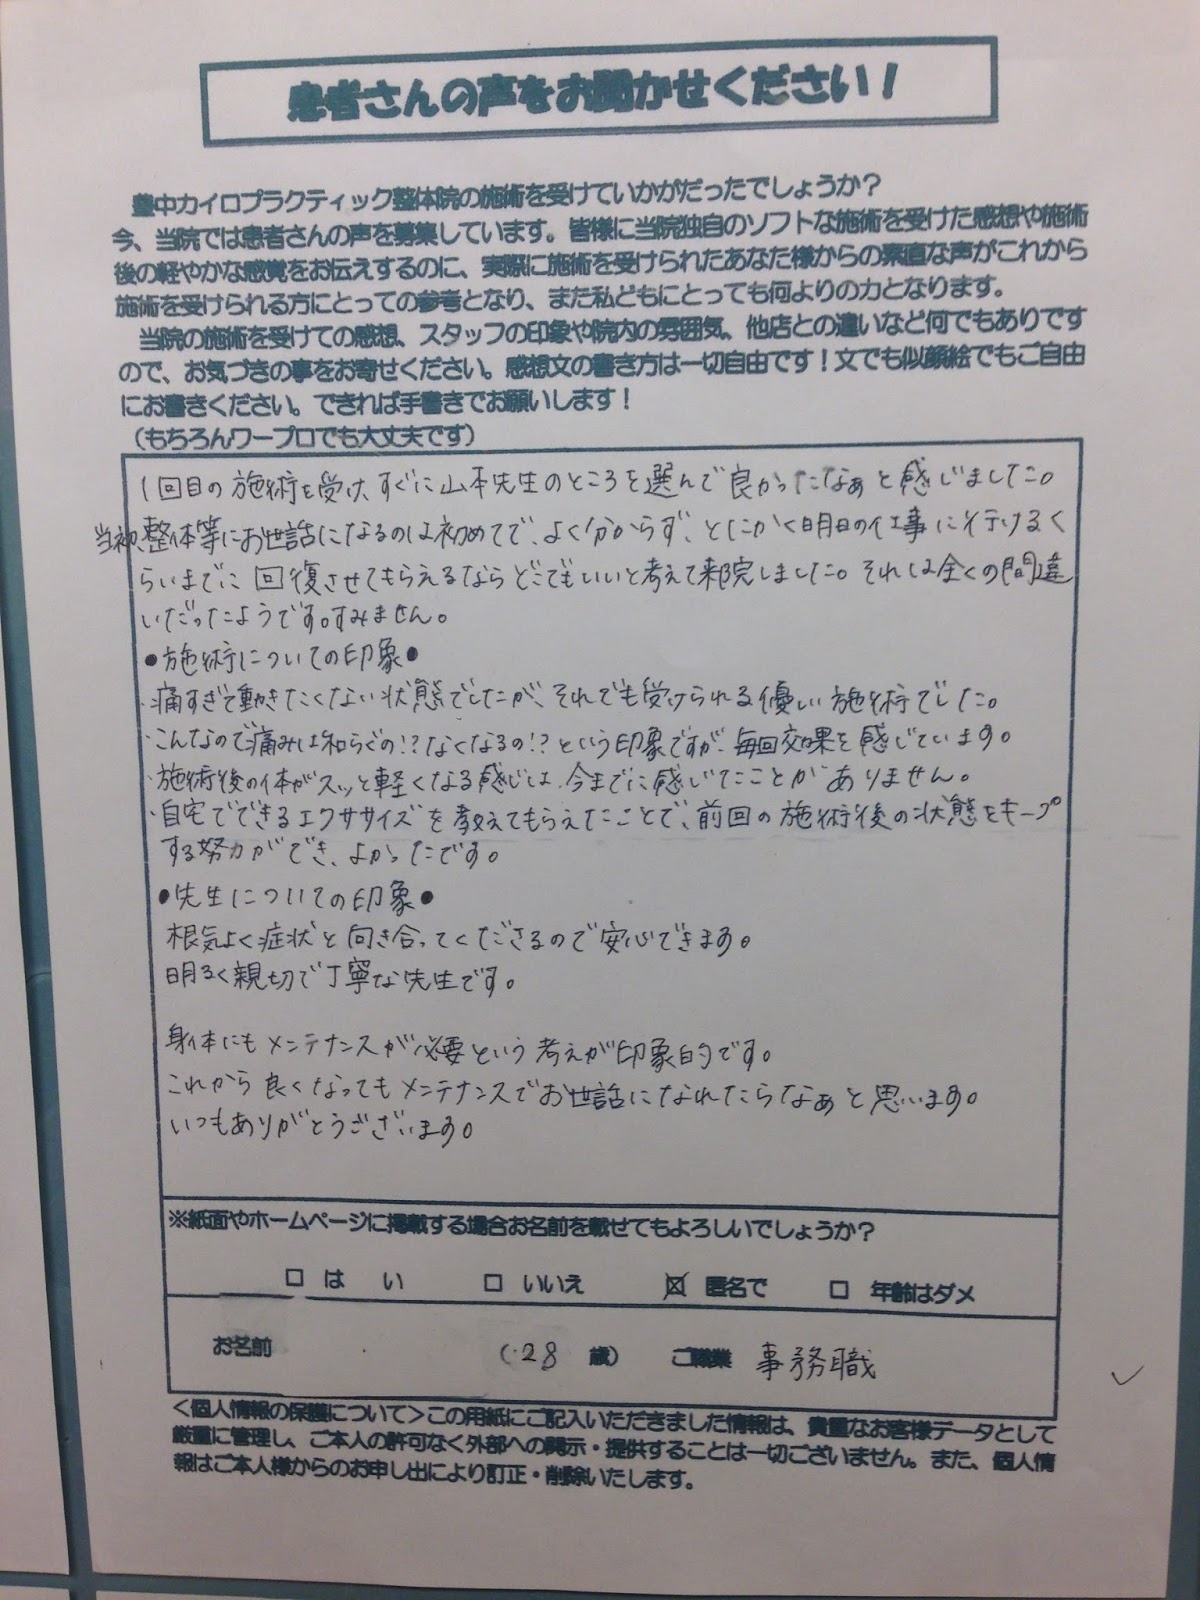 患者さんの声をお聞かせください！
豊中カイロプラクティック整体院の施術を受けていかがだったでしょうか？
今、当院では患者さんの声を募集しています。皆様に当院独自のソフトな施術を受けた感想や施術
後の軽やかな感覚をお伝えするのに、実際に施術を受けられたあなた様からの素直な声がこれから
施術を受けられる方にとっての参考となり、また私どもにとっても何よりの力となります。
当院の施術を受けての感想、スタッフの印象や院内の雰囲気、他店との違いなど何でもありです
ので、お気づきの事をお寄せください。感想文の書き方は一切自由です！文でも似顔絵でもご自由
にお書きください。できれば手書きでお願いします！
（もちろんワープロでも大丈夫です）
1回目の施術を受け、すぐに山本先生のところを選んで良かったなぁと感じました。
当初、整体等にお世話になるのは初めてで、よく分からず、とにかく明日の仕事に行けるく
らいまでに回復させてもらえるならどこでもいいと考えて来院しました。それは全くの間違
いだったようです。すみません。
●施術についての印象●
・痛すぎて動きたくない状態でしたが、それでも受けられる優しい施術でした。
・こんなので痛みは和らぐの!?なくなるの!?という印象ですが、毎回効果を感じています。
・施術後の体がスッと軽くなる感じは、今までに感じたことがありません。
・自宅でできるエクササイズを教えてもらえたことで、前回の施術後の状態をキープ
する努力ができ、よかったです。
●先生についての印象●
根気よく症状と向き合ってくださるので安心できます。
明るく親切で丁寧な先生です。
身体にもメンテナンスが必要という考えが印象的です。
これから良くなってもメンテナンスでお世話になれたらなぁと思います。
いつもありがとうございます。
※紙面やホームページに掲載する場合お名前を載せてもよろしいでしょうか？
□ はい □ いいえ ☒ 匿名で □ 年齢はダメ
お名前 （28 歳） ご職業 事務職
＜個人情報の保護について＞この用紙にご記入いただきました情報は、貴重なお客様データとして
厳重に管理し、ご本人の許可なく外部への開示・提供することは一切ございません。また、個人情
報はご本人様からのお申し出により訂正・削除いたします。